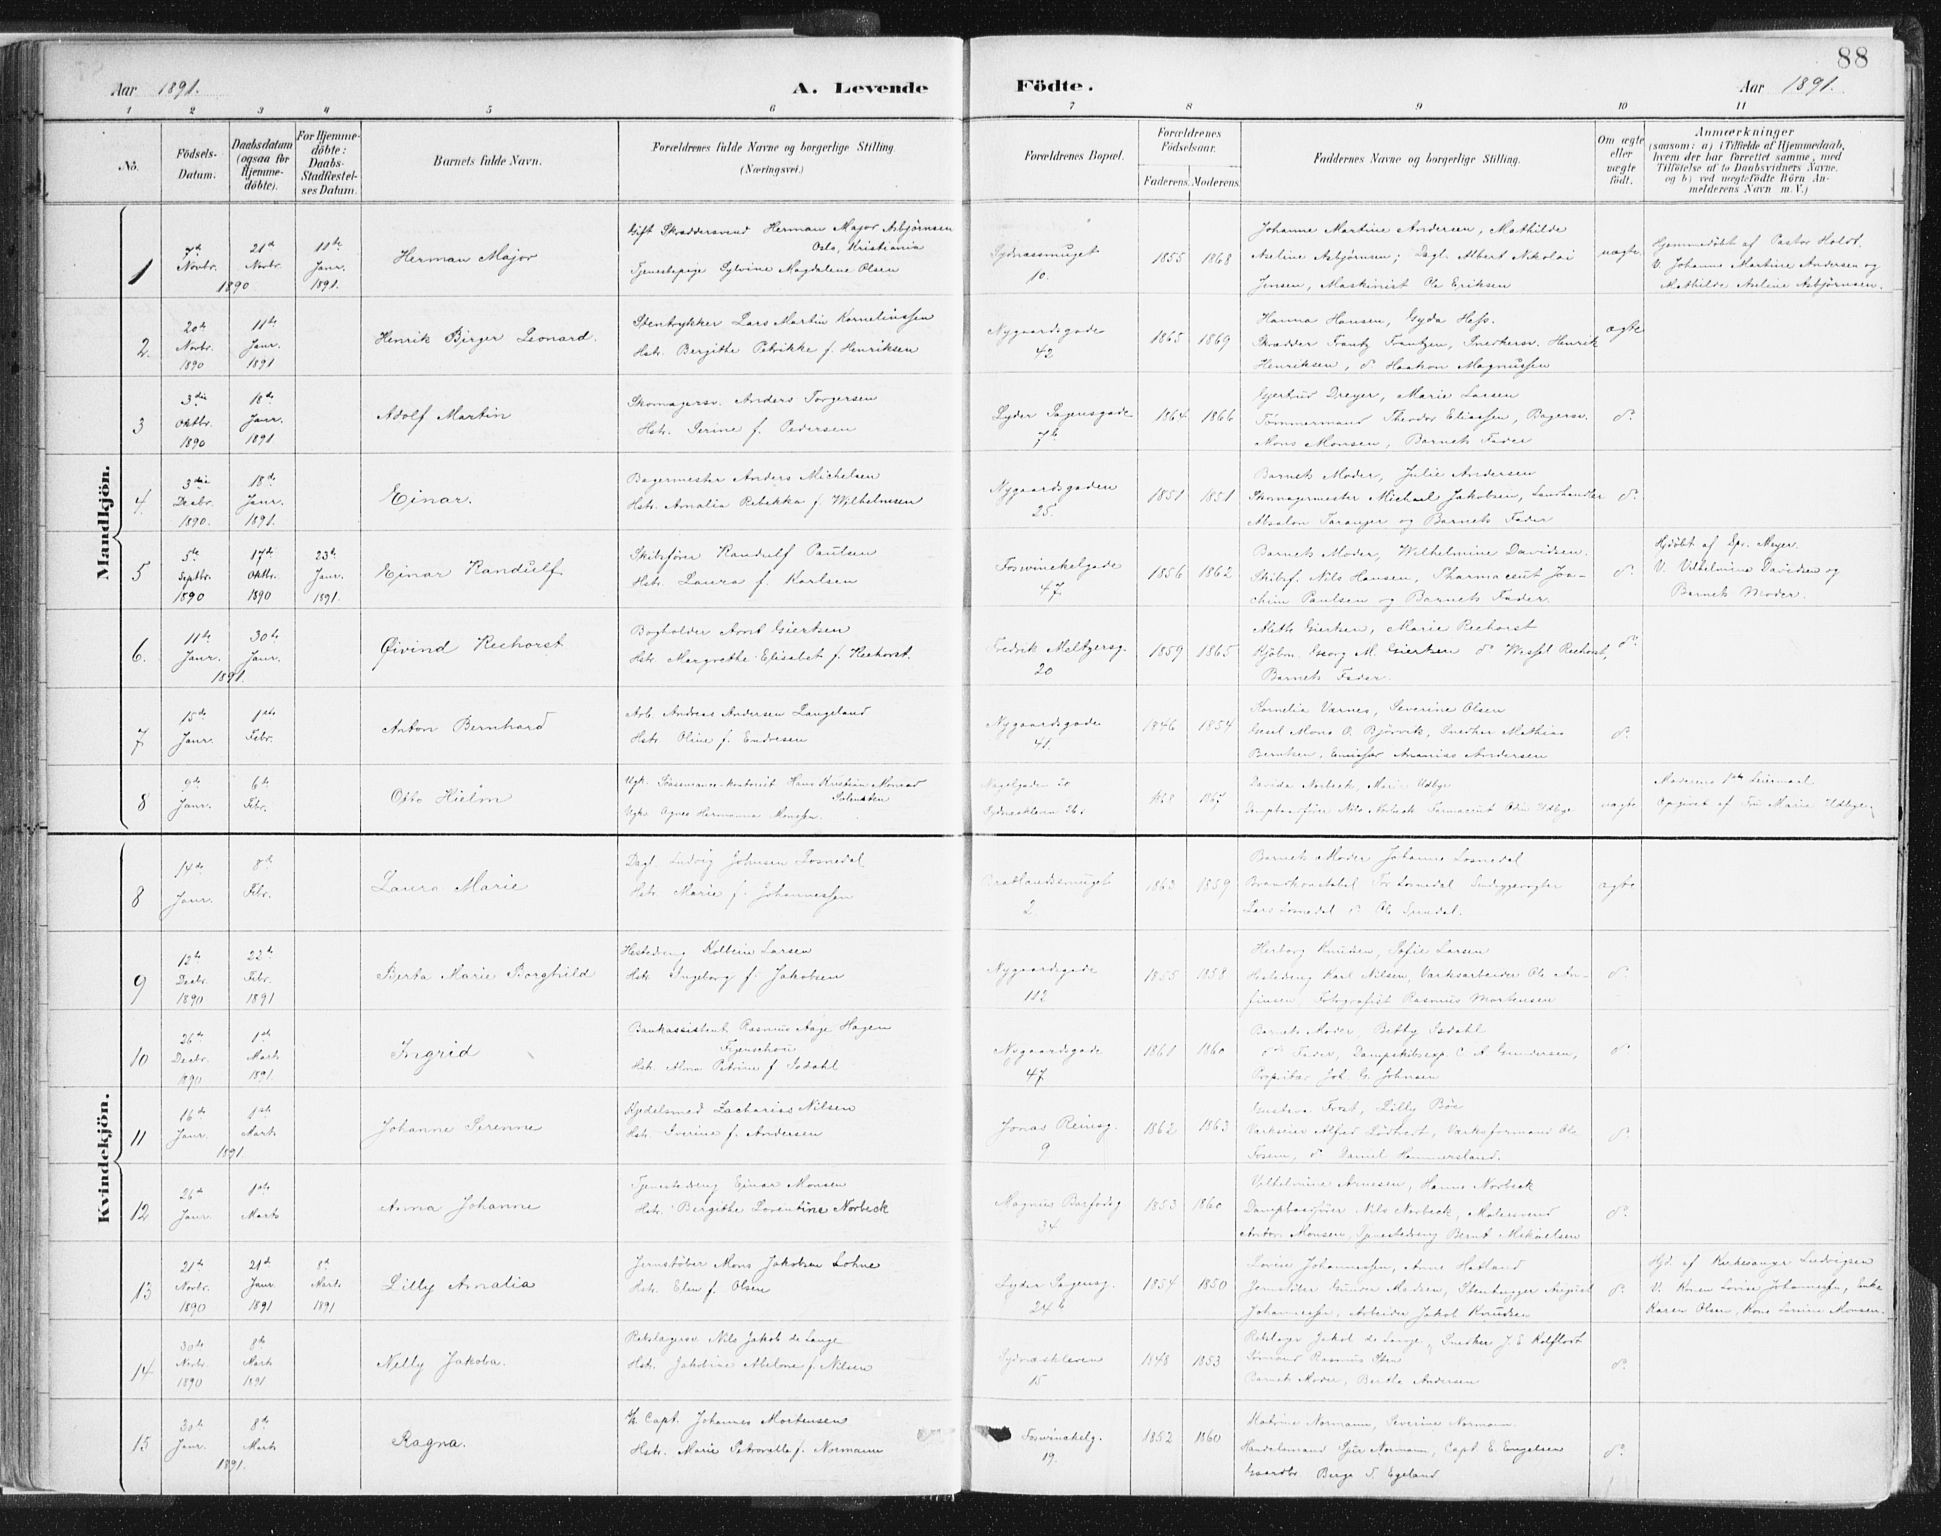 88
Aar 1891. A. Levende Födte. Aar 1891.
1 2 3 4 5 6 7 8 9 10 11
No. Födsels-Datum. Daabsdatum (ogsaa for Hjemme-döbte). For Hjemme-döbte: Daabs-Stadfæstel-ses Datum. Barnets fulde Navn. Forældrenes fulde Navne og borgerlige Stilling (Næringsvei.) Forældrenes Bopæl. Forældrenes Födselsaar. Faderens. Moderens. Faddernes Navne og borgerlige Stilling. Om ægte eller uægte födt. Anmærkninger (saasom: a) i Tilfælde af Hjemmedaab, hvem der har forrettet samme, med Tilföielse af to Daabsvidners Navne, og b) ved uægtefödte Börn An-melderens Navn m. V.)
Mandkjön.
1 7de Novbr. 21de Novbr. 1890 11te Janr. 1891. Herman Major
Gift Skræddersvend Herman Major Asbjörnsen
Oslo, Kristiania
Tjenestepige Sylvine Magdalene Olsen
Sydnæssmuget 10. 1855 1868
Johanne Martine Andersen, Mathilde
Aseline Asbjörnsen; Dagl. Albert Nikolai
Jensen, Maskinist Ole Eriksen
uægte
Hjemmedöbt af Pastor Holdt.
V. Johanne Martine Andersen og
Mathilde Aseline Asbjörnsen.
2. 20de Novbr. 1890 11te Janr. 1891 Henrik Birger Leonard.
Stentrykker Lars Martin Korneliussen
Hstr. Bergithe Petrikke f. Henriksen
Nygaardsgade 42 1865 1869
Hanna Hansen, Gyda Hess.
Skrædder Frantz Frantzen, Snedkersv. Henrik
Henriksen, do Haakon Magnussen
ægte
3 3die Oktbr. 1890 18de Janr. 1891 Adolf Martin
Skomagersv. Anders Torgersen
Hstr. Serine f. Pedersen
Lyder Sagensgade 7b 1864 1866
Gjertrud Dreyer, Marie Larsen
Tömmermand Theodor Eliassen, Bagersv.
Mons Monsen, Barnets Fader
do
4. 3die Decbr. 1890. 18de Janr. 1891. Einar.
Bagermester Anders Michelsen
Hstr. Amalia Rebekka f. Wilhelmsen
Nygaardsgaden 25. 1851 1851
Barnets Moder, Julie Andersen
Skomagermester Michael Jakobsen, Landhandler
Absalon Taranger og Barnets Fader
do
5 5te Septbr. 1890 17de Oktbr. 1890 23de Janr. 1891. Einar Randulf
Skibsförer Randulf Paulsen
Hstr. Laura f. Karlsen
Foswinckelgade 47. 1856 1862
Barnets Moder, Wilhelmine Davidsen.
Skibsf. Nils Hansen, Pharmaceut Joa-
chim Paulsen og Barnets Fader.
do
Hjdöbt af Spr. Meyer.
V. Vilhelmine Davidsen og
Barnets Moder.
6. 11te Janr. 30te Janr. 1891. Øivind Reehorst
Bogholder Arnt Giertsen
Hstr. Margrethe Elisabet f. Reehorst.
Fredrik Meltzersg. 20 1859 1865
Aleth Giertsen, Marie Reehorst
Kjöbm. Georg M. Giertsen do Wessel Reehorst,
Barnets Fader.
do
7 15de Janr. 1ste Febr. Anton Bernhard
Arb. Andreas Andersen Langeland
Hstr. Oline f. Endresen
Nygaardsgade 41. 1846 1854
Kornelia Værnes, Severine Olsen
Gesel Mons O. Björvik, Snedker Mathias
Berntsen, Emissær Ananias Andersen
do
8 9de Janr. 6te Febr. Otto Hielm
Ugk. Hans Kristian Monrad
Ugk. Agnes Hermanna Monsen
1867
Davida Norbeck, Marie Udbye
Dampbaadförer Nils Norbeck Farmaceut Odin Udbye
uægte
Moderens 1ste Leiermaal
Opgivet af Fru Marie Udbye
Kvindekjön.
8 14de Janr. 8de Febr. Laura Marie
Dagl. Ludvig Johnsen Losnedal
Hstr. Marie f. Johannessen
Bratlandssmuget 2. 1863 1859
Barnets Moder Johanne Losnedal
Brandkonstabel Tor Losnedal
Lars Losnedal do Ole
ægte
9 12te Decbr. 1890 22de Febr. 1891 Berta Marie Borghild
Hestedreng Kolbein Larsen
Hstr. Ingeborg f. Jakobsen
Nygaardsgade 112 1855 1858
Herborg Knudsen, Sofie Larsen
Hestedreng Karl Nilsen, Værksarbeider Ole An-
finsen, Fotografist Rasmus Mortensen
do
10 26de Decbr. 1890 1ste Marts 1891. Ingrid
Bankassistent Rasmus Aage Hagen
Fejenschou
Hstr. Alma Petrine f. Isdahl
Nygaardsgade 47. 1861 1860
Barnets Moder Betty Isdahl
do Fader, Dampskibsexp. C. A Gundersen,
Proprietær Joh. G. Johnsen
do
11 16de Janr. 1ste Marts 1891 Johanne Serenne
Kjedelsmed Zacharias Nilsen
Hstr. Severine f. Andersen
Jonas Reinsg. 9 1862 1863
Gustava Frost, Lilly Böe
Værkseier Alfred Lödtvedt, Værksformand Ole
Fosen, do Daniel Hammersland.
do
12 26de Janr. 1ste Marts Anna Johanne
Tjenestedreng Einar Monsen
Hstr. Bergithe Lorentine Norbeck
Magnus Barfodsg 34 1853 1860
Vilhelmine Arnesen, Hanna Norbeck
Dampbaadförer Nils Norbeck, Malersvend
Anton Monsen, Tjenestedreng Bernt Mikaelsen
do
13 21de Novbr. 1890 21de Janr. 1891 8de Marts 1891 Lilly Amalia
Jernstöber Mons Jakobsen Lohne
Hstr. Elen f. Olsen
Lyder Sagensg. 24b 1854 1850
Lovise Johannessen, Anne Hatland
Jernstöber Gunder Madsen, Stenhugger August
Johannessen, Arbeider Jakob Knudsen
do
Hjd. af Kirkesanger Ludvigsen
V. Konen Lovise Johannessen, Enke
Karen Olsen, Kone Lovise Monsen.
14 30te Novbr. 1890 8de Marts 1891 Nelly Jakoba.
Rebslagersv Nils Jakob de Lange
Hstr. Jakobine Abelone f. Nilsen
Sydnæskleven 15 1848 1853
Rebslager Jakob de Lange, Snedker J. E Kolflodt
Sömand Rasmus Sten
Barnets Moder, Berthe Andersen
do
15 30te Janr. 8de Marts 1891. Ragna.
Capt. Johannes Mortensen
Hstr. Marie Petronelle f. Normann
Foswinckelg. 19. 1852 1860
Katrine Normann, Severine Normann.
Handelsmand Sjur Normann, Capt. E. Engelsen
Gaardbr Berge T. Egeland
do